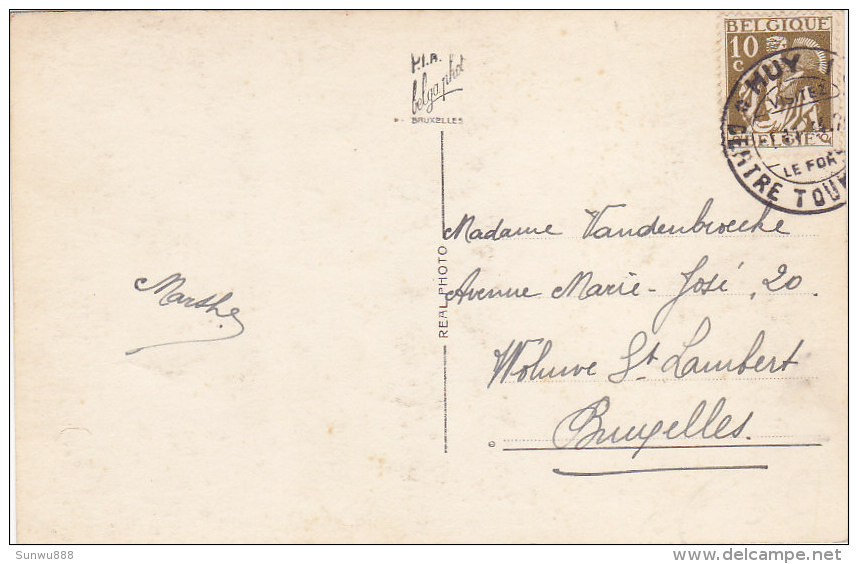 P.I.B.
belga phot
BRUXELLES
BELGIQUE
10
c
BELGIE
HUY
VISITEZ
LE FORT
CENTRE TOU
REAL PHOTO
Madame Vandenbroecke
Avenue Marie-José, 20.
Woluwe St Lambert
Bruxelles.
Marthe
Sunwu888
www.delcampe.net